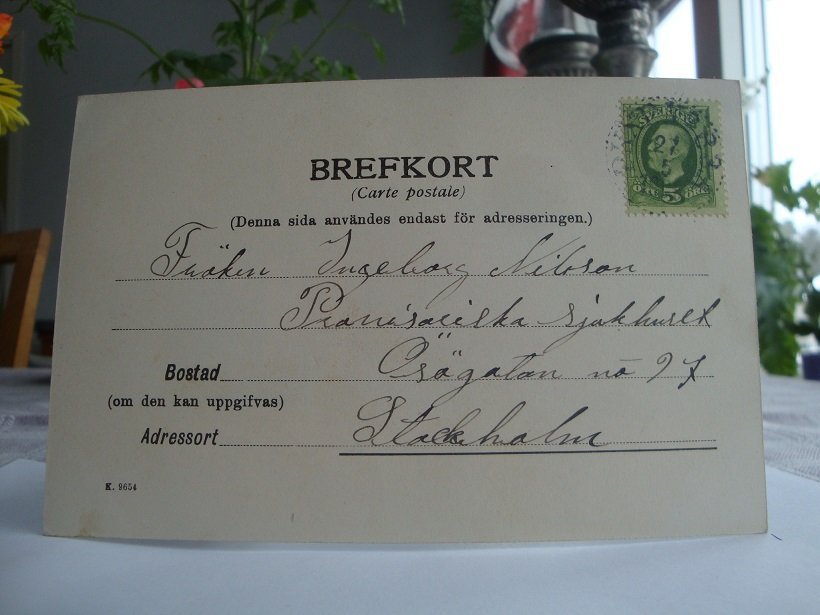 BREFKORT
(Carte postale)
(Denna sida användes endast för adresseringen.)
SVERIGE
5
Fröken Ingeborg Nilsson
sjukhuset
Bostad
Åsögatan no 97
(om den kan uppgifvas)
Adressort Stockholm
K. 9654